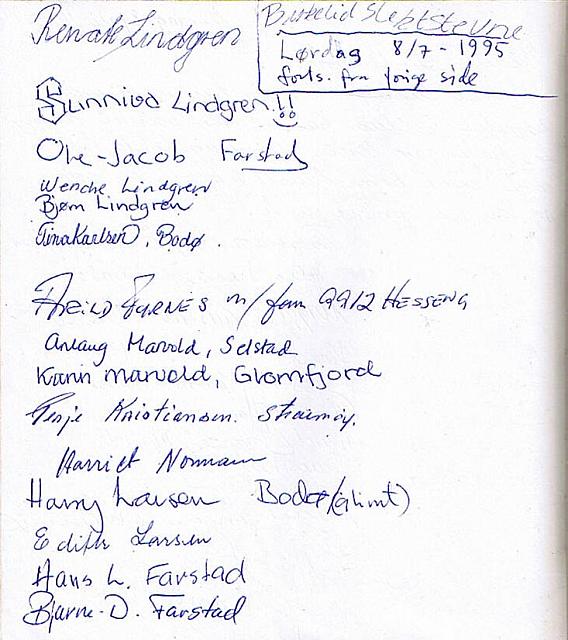 Renate Lindgren
Slektstevne
Lørdag 8/7 - 1995
forts. fra forige side
Sunniva Lindgren!!
Ole-Jacob Farstad
Wenche Lindgren
Bjørn Lindgren
Tina Karlsen, Bodø.
m/fam 9912 HESSENG
Anlaug Marvold, Selstad
Karin Marvold, Glomfjord
Terje Kristiansen. Straumøy.
Harriet Normann
Harry Larsen Bodø/(glimt)
Edith Larsen
Hans L. Farstad
Bjarne-D. Farstad